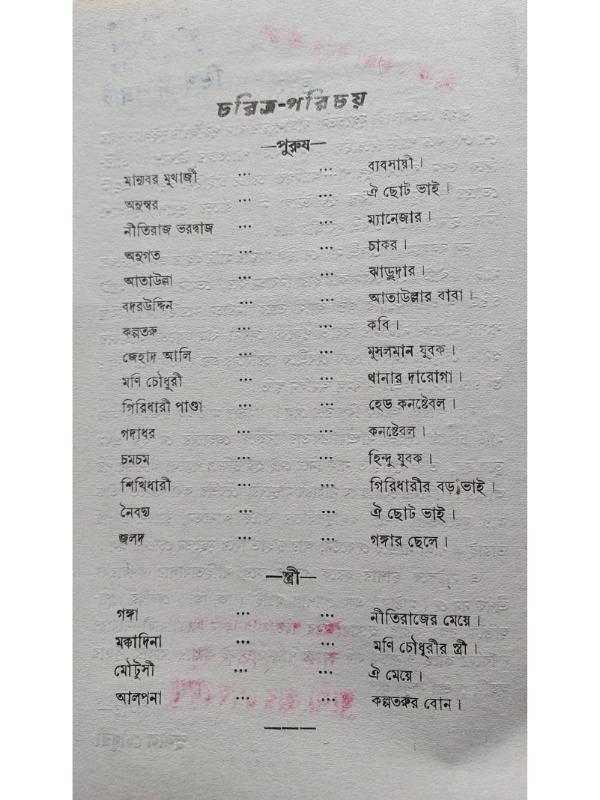 চরিত্র-পরিচয়
—পুরুষ—
মান্যবর মুখার্জী ... ... ব্যবসায়ী।
অনুম্বর ... ... ঐ ছোট ভাই।
নীতিরাজ ভরদ্বাজ ... ... ম্যানেজার।
অনুগত ... ... চাকর।
আতাউল্লা ... ... ঝাড়ুদার।
বদরউদ্দিন ... ... আতাউল্লার বাবা।
কল্পতরু ... ... কবি।
জেহাদ আলি ... ... মুসলমান যুবক।
মণি চৌধুরী ... ... থানার দারোগা।
গিরিধারী পাণ্ডা ... ... হেড কনষ্টেবল।
গদাধর ... ... কনষ্টেবল।
চমচম ... ... হিন্দু যুবক।
শিখিধারী ... ... গিরিধারীর বড় ভাই।
নৈবদ্য ... ... ঐ ছোট ভাই।
জলদ ... ... গঙ্গার ছেলে।
—স্ত্রী—
গঙ্গা ... ... নীতিরাজের মেয়ে।
মক্কাদিনা ... ... মণি চৌধুরীর স্ত্রী।
মৌটুসী ... ... ঐ মেয়ে।
আলপনা ... ... কল্পতরুর বোন।